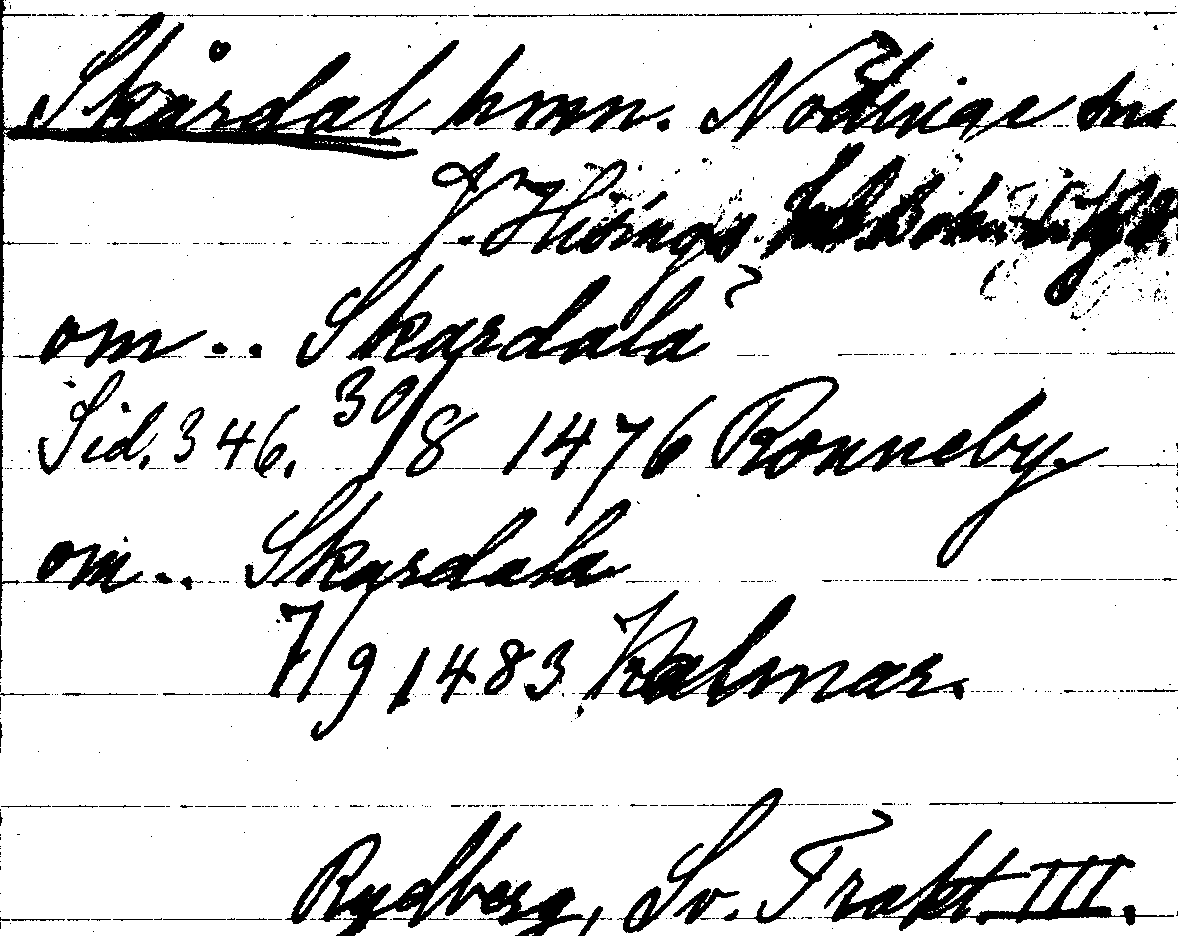 Skårdal hmn. Nödinge sn
V. Hisings
om .. Skardala
Sid. 346. 30/8 1476 Ronneby.
om .. Skardala
7/9 1483 Kalmar.
Rydberg, Sv. Trakt. III.